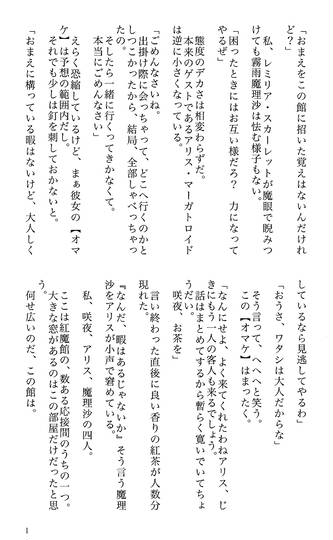 「おまえをこの館に招いた覚えはないんだけれ
ど？」
私、レミリア・スカーレットが魔眼で睨みつ
けても霧雨魔理沙は怯む様子もない。
「困ったときにはお互い様だろ？　力になって
やるぜ」
態度のデカさは相変わらずだ。
本来のゲストであるアリス・マーガトロイド
は逆に小さくなっている。
「ごめんなさいね。
出掛け際に会っちゃって、どこへ行くのかと
しつこかったから、結局、全部しゃべっちゃっ
たの。
そしたら一緒に行くってきかなくて。
本当にごめんなさい」
えらく恐縮しているけど、まぁ彼女の【オマ
ケ】は予想の範囲内だし。
それでも少しは釘を刺しておかないと。
「おまえに構っている暇はないけど、大人しく
しているなら見逃してやるわ」
「おうさ、ワタシは大人だからな」
そう言って、へへへと笑う。
この【オマケ】はまったく。
「なんにせよ、よく来てくれたわねアリス、じ
きにもう一人の客人も来るでしょう。
話はまとめてするから暫く寛いでいてちょ
うだい。
咲夜、お茶を」
言い終わった直後に良い香りの紅茶が人数分
現れた。
『なんだ、暇はあるじゃないか』そう言う魔理
沙をアリスが小声で窘めている。
私、咲夜、アリス、魔理沙の四人。
ここは紅魔館の、数ある応接間のうちの一つ。
大きな窓があるのはこの部屋だけだったと思
う。
何せ広いのだ、この館は。
1